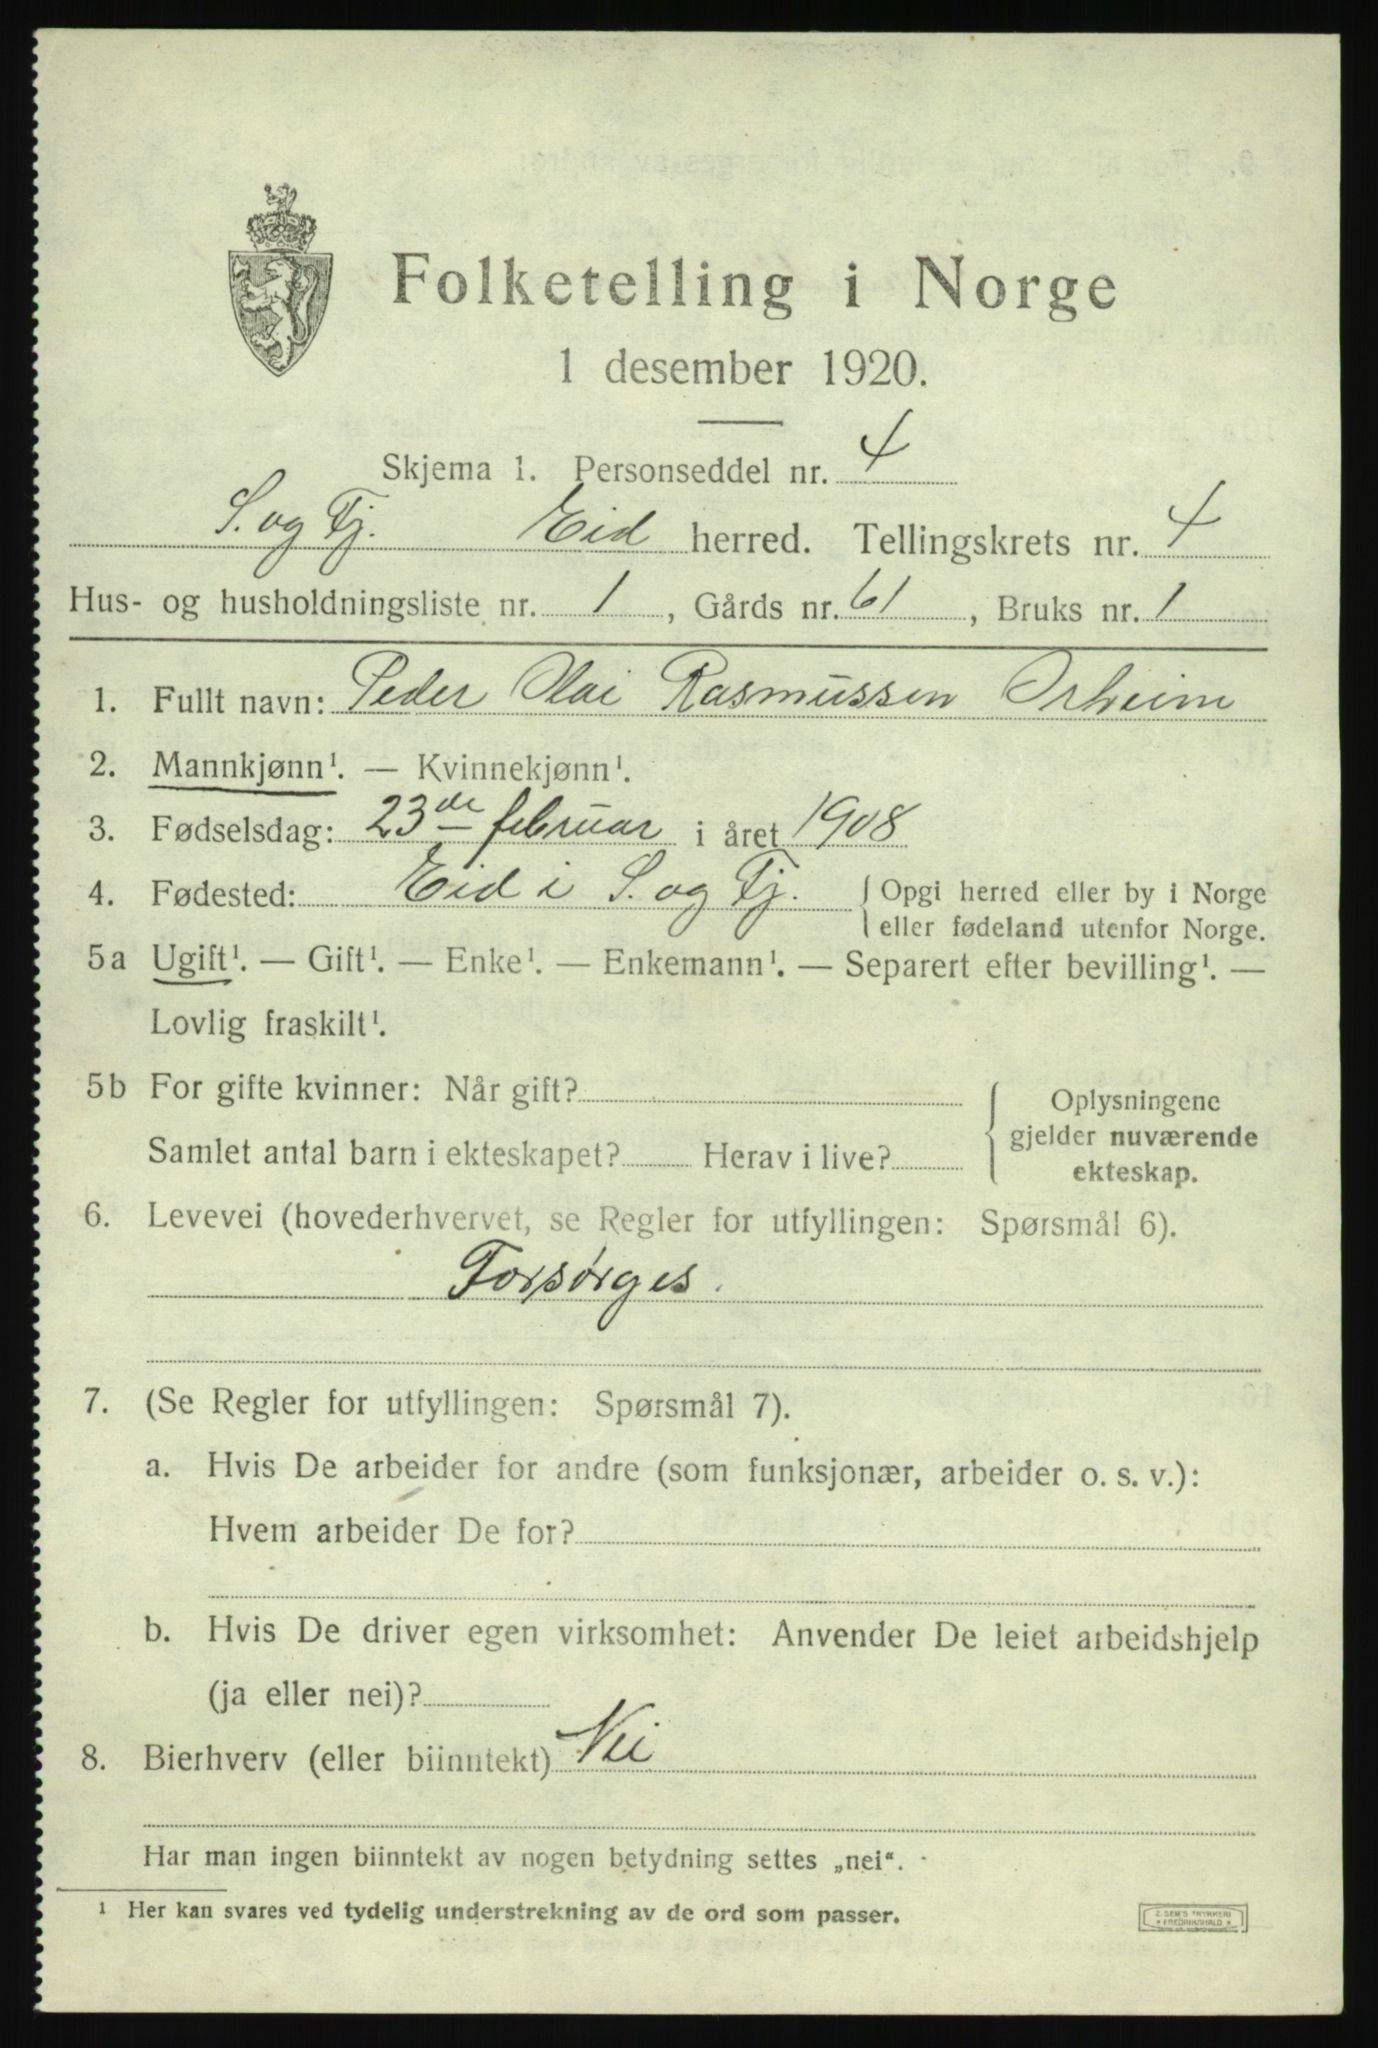 Folketelling i Norge
1 desember 1920.
Skjema 1. Personseddel nr. 4
S. og Fj. Eid herred. Tellingskrets nr. 4
Hus- og husholdningsliste nr. 1, Gårds nr. 61, Bruks nr. 1
1. Fullt navn: Peder Olai Rasmussen Orheim
2. Mannkjønn¹. — Kvinnekjønn¹.
3. Fødselsdag: 23de februar i året 1908
4. Fødested: Eid i S. og Fj. { Opgi herred eller by i Norge
eller fødeland utenfor Norge.
5a Ugift¹. — Gift¹. — Enke¹. — Enkemann¹. — Separert efter bevilling¹. —
Lovlig fraskilt¹.
5b For gifte kvinner: Når gift?
Samlet antal barn i ekteskapet? Herav i live?
Oplysningene
gjelder nuværende
ekteskap.
6. Levevei (hovederhvervet, se Regler for utfyllingen: Spørsmål 6).
Forsørges.
7. (Se Regler for utfyllingen: Spørsmål 7).
a. Hvis De arbeider for andre (som funksjonær, arbeider o. s. v.):
Hvem arbeider De for?
b. Hvis De driver egen virksomhet: Anvender De leiet arbeidshjelp
(ja eller nei)?
8. Bierhverv (eller biinntekt) Nei
Har man ingen biinntekt av nogen betydning settes „nei“.
¹ Her kan svares ved tydelig understrekning av de ord som passer.
E. SEM'S TRYKKERI
* FREDRIKSHALD *